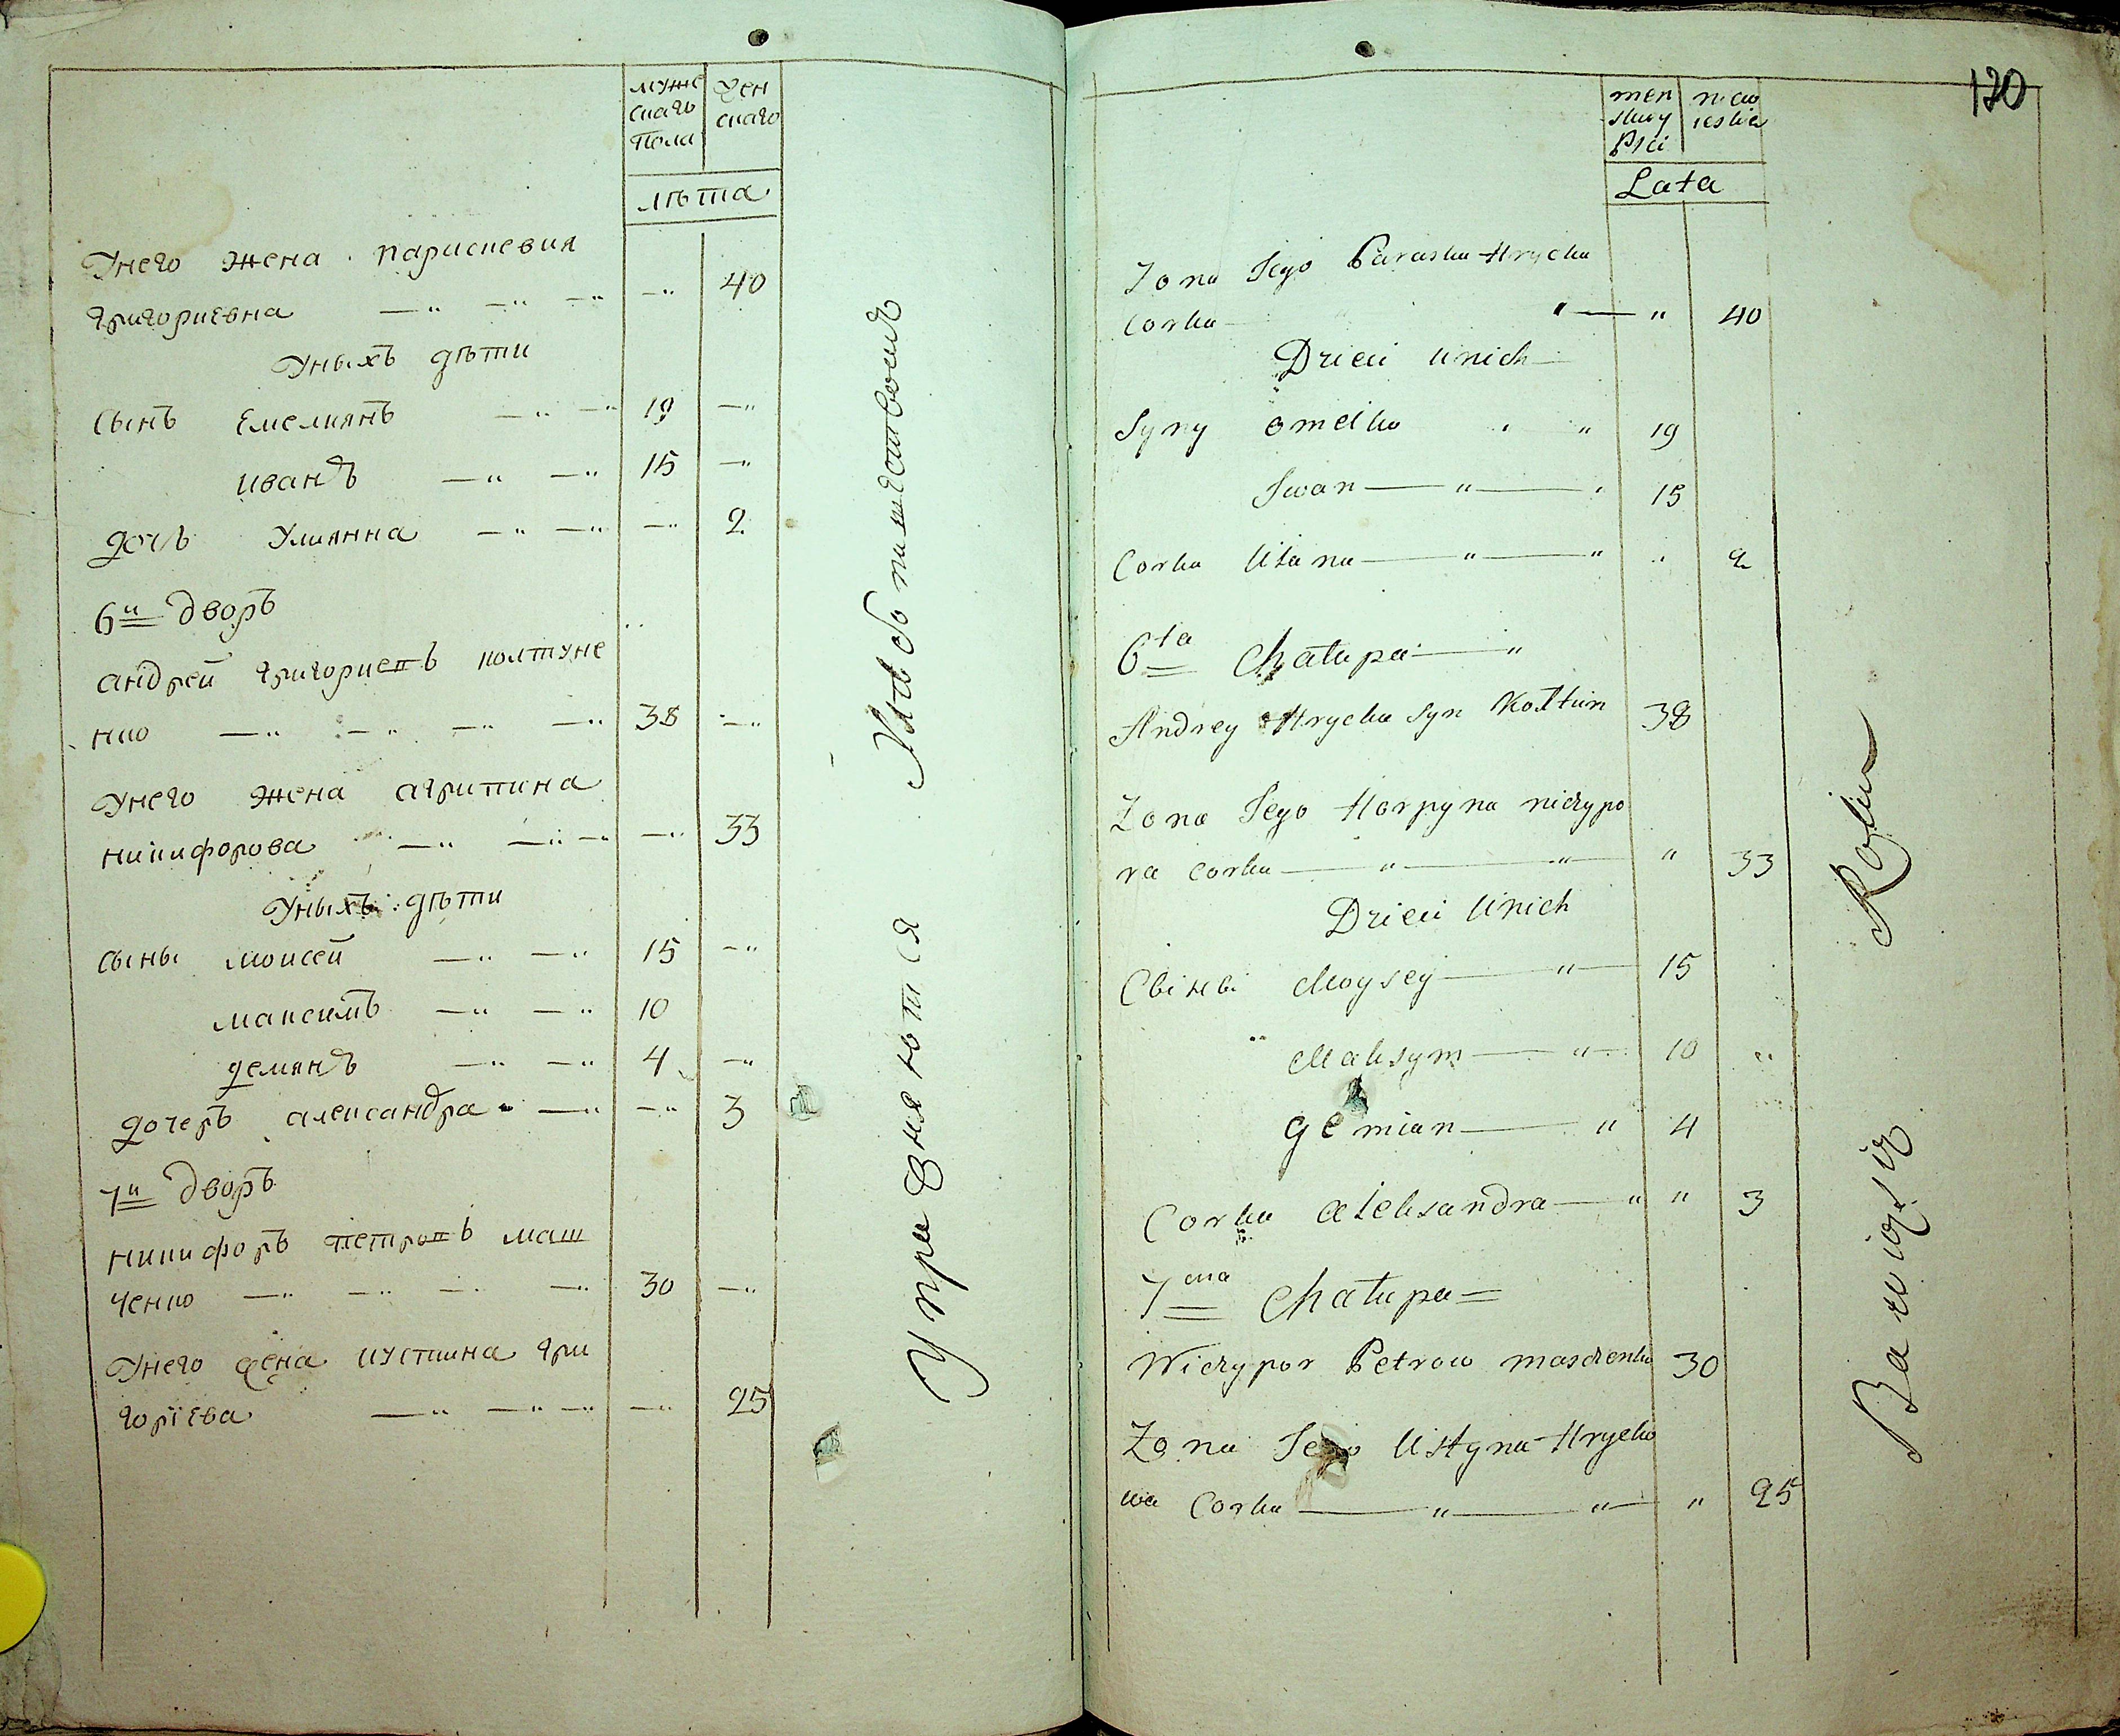 муже
скаго
пола
жен
скаго
лѣта
Унего жена парискевия
григориевна —" —" —" —" 40
Уныхъ дѣти
Сынъ Емелиянъ —" —" 19 —"
иванъ —" —" 15 —"
дочь Улиянна —" —" —" 2
6й дворъ
андрей григориевъ колтуне
нко —" —" —" —" 38 —"
Унего жена агрипина
никифорова —" —" —" —" 33
Уныхъ дѣти
сыны моисей —" —" 15 —"
максимъ —" —" 10
демянъ —" —" 4 —"
дочеръ александра —" —" 3
7й дворъ
никифоръ петровъ маш
ченко —" —" —" —" 30 —"
Унего жена иустиина гри
гориева —" —" —" —" 25
Упражняются
Хлебопашествомъ
120
men
skiey
Płci
niew
ieskiey
Lata
Zona Jego Paraska Hrycka
Corka " — " 40
Dzieci Unich
Syny Omelko " " 19
Iwan — " — " 15
Corka Ulana — " — " " 2
6ta Chałupa — "
Andrey Hrycka syn Kołtun 38
Zona Jego Horpyna niczypo
ra corka — " — " " 33
Dzieci Unich
Сыны Moysey — " 15
" Maksym — " 10 "
Demian — " 4
Corka Aleksandra — " " 3
7ma Chałupa =
Niczypor Petrow maszczenko 30
Zona Jego Ustyna Hrycko
wa Corka — " — " " 25
Bawią się
Rolu